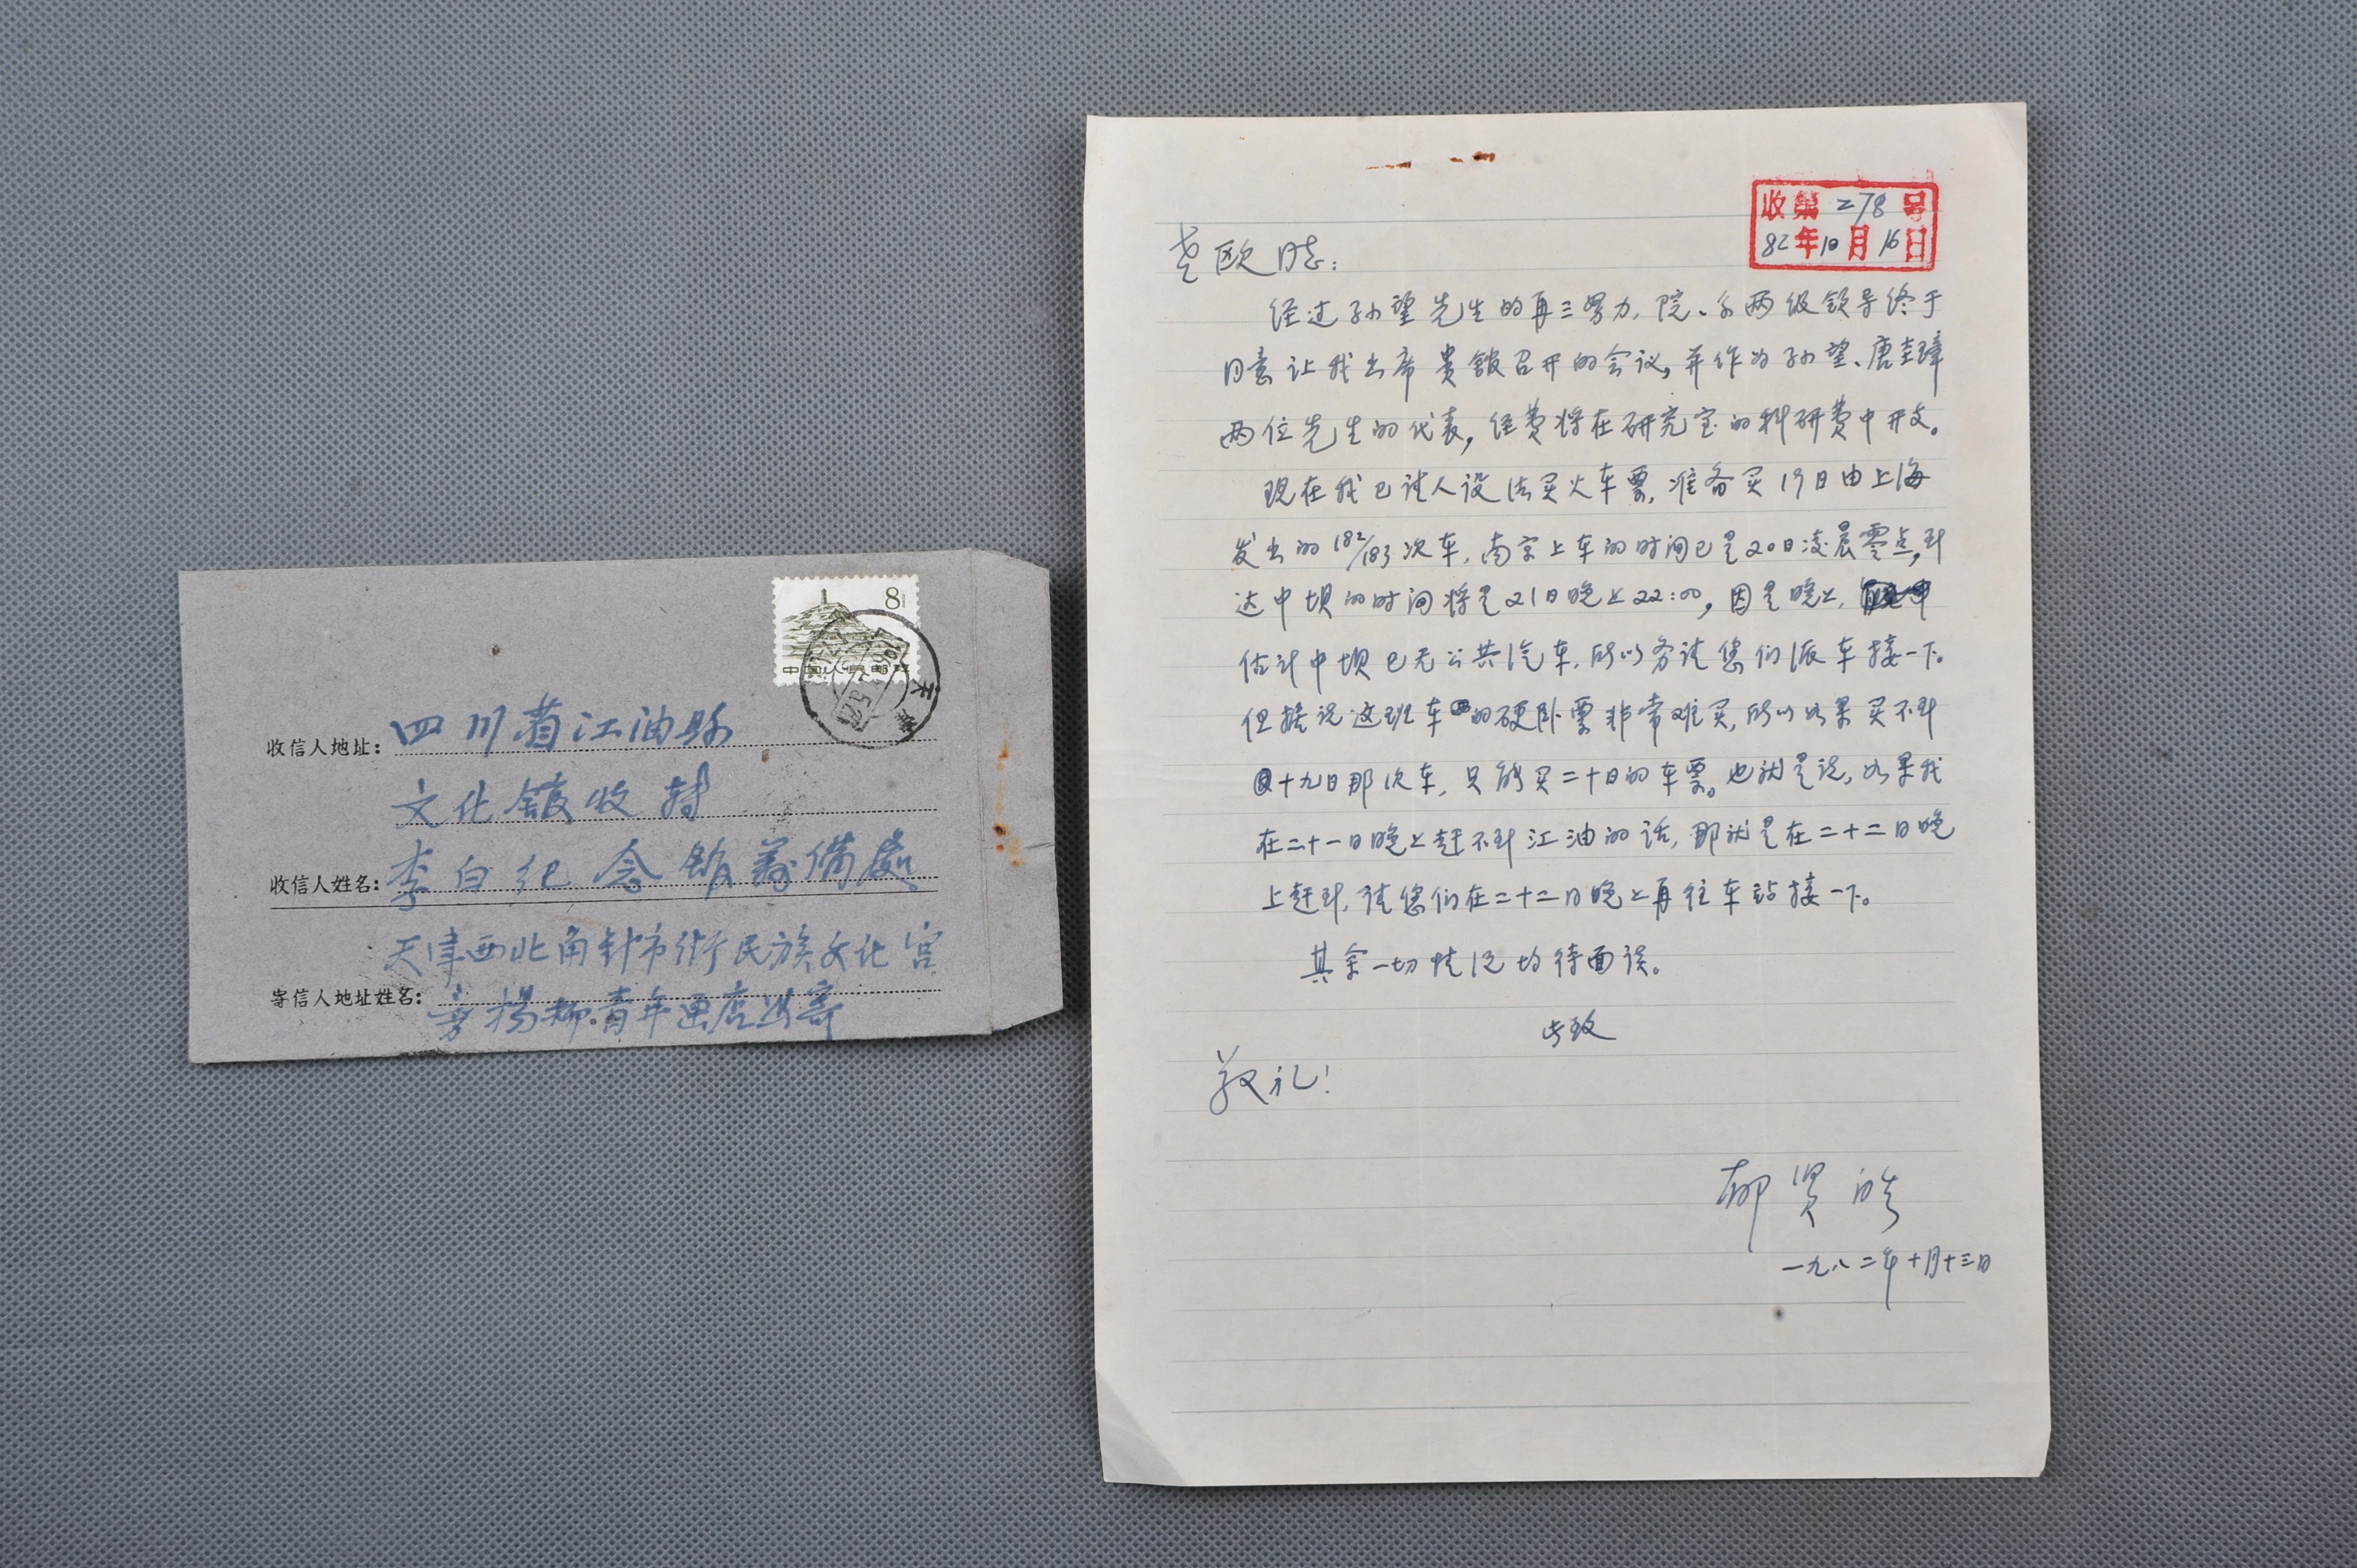 8分
中国人民邮政
天津
收信人地址: 四川省江油县
文化馆收转
收信人姓名: 李白纪念馆筹備處
天津西北角針市街民族文化宫
寄信人地址姓名: 旁楊柳青年画店 寄
收第278号
82年10月16日
欧同志:
经过孙望先生的再三努力,院、系两级领导终于
同意让我出席贵馆召开的会议,并作为孙望、唐圭璋
两位先生的代表,经费将在研究室的科研费中开支。
现在我已请人设法买火车票,准备买19日由上海
发出的182/183次车,南京上车的时间已是20日凌晨零点,到
达中坝的时间将是21日晚上22:00,因是晚上,
估计中坝已无公共汽车,所以务请您们派车接一下。
但据说这班车的硬卧票非常难买,所以如果买不到
十九日那次车,只能买二十日的车票。也就是说,如果我
在二十一日晚上赶不到江油的话,那就是在二十二日晚
上赶到,请您们在二十二日晚上再往车站接一下。
其余一切情况均待面谈。
此致
敬礼!
郁贤皓
一九八二年十月十三日